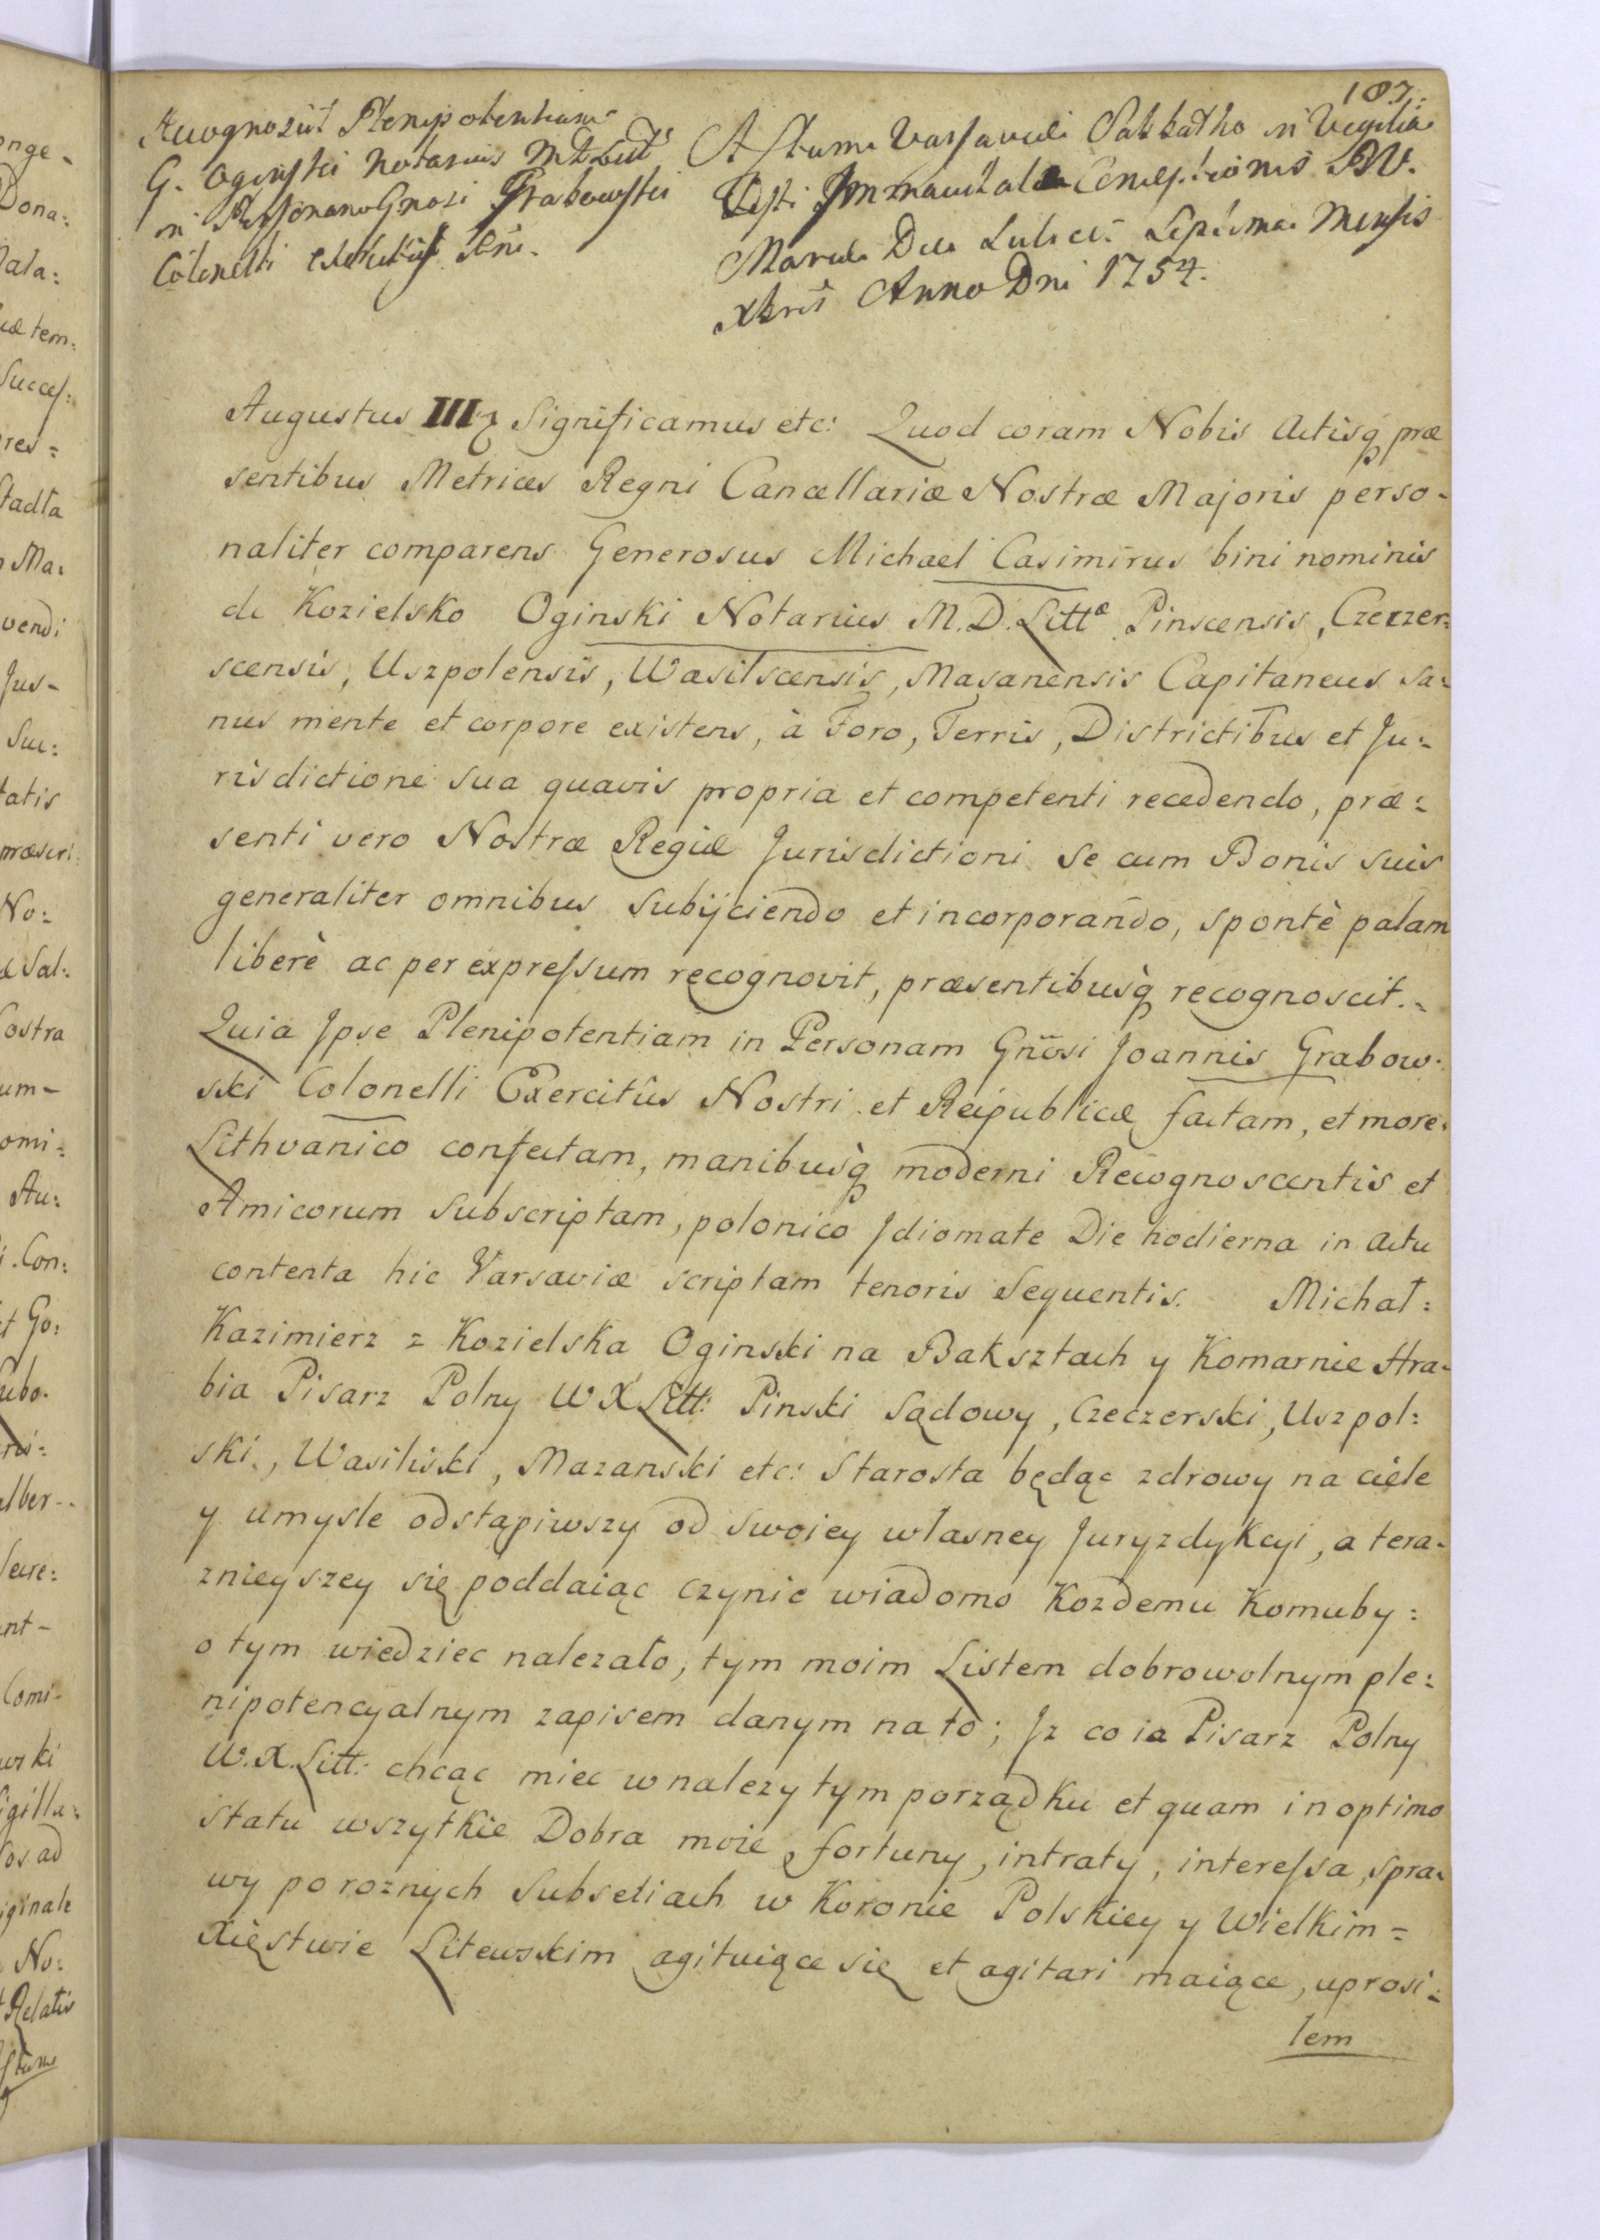 187.
Recognoscit Plenipotentiam
G. Oginski Notarius M.D. Litt
in Personam Gnosi Grabowski
Colonelli exercitus
Actum Varsaviae Sabbatho in Vigilia
Festi Immaculatae Conceptionis B.V.
Mariae Die scilicet Septima Mensis
Xbris Anno Dni 1754.
Augustus III Significamus etc: Quod coram Nobis Actisq præ
sentibus Metrices Regni Cancellariæ Nostræ Majoris perso-
naliter comparens Generosus Michael Casimirus bini nominis
de Kozielsko Oginski Notarius M.D. Littæ Pinscensis, Czeczer=
scensis, Uszpolensis, Wasilscensis, Mazanensis Capitaneus Sa=
nus mente et corpore existens, à Foro, Terris, Districtibus et Ju=
risdictione sua quavis propria et competenti recedendo, præ=
senti vero Nostræ Regiæ Jurisdictioni Se cum Bonis suis
generaliter omnibus Subijciendo et incorporando, spontè palam
liberè ac per expressum recognovit, præsentibusq recognoscit.
Quia Jpse Plenipotentiam in Personam Gnosi Joannis Grabow-
ski Colonelli Exercitûs Nostri et Reipublicæ factam, et more
Lithvanico confectam, manibusq moderni Recognoscentis et
Amicorum Subscriptam, polonico Jdiomate Die hodierna in Actu
contenta hic Varsaviæ scriptam tenoris Sequentis. Michał=
Kazimierz z Kozielska Oginski na Baksztach y Komarnie Hra-
bia Pisarz Polny W X Litt: Pinski Sądowy, Czeczerski, Uszpol=
ski, Wasiliski, Mazanski etc: Starosta będąc zdrowy na ciele
y umysle odstąpiwszy od swoiey własney Juryzdykcyi, a tera-
znieyszey się poddaiąc czynie wiadomo Kozdemu Komuby=
o tym wiedziec nalezało, tym moim Listem dobrowolnym ple=
nipotencyalnym zapisem danym na to; Jz co ia Pisarz Polny
W.X. Litt: chcąc miec w nalezytym porządku et quam in optimo
Statu wszytkie Dobra moie, fortuny, intraty, interessa, spra-
wy po roznych Subseliach w Koronie Polskiey y Wielkim=
Xięstwie Litewskim agituiące się et agitari maiące, uprosi=
łem